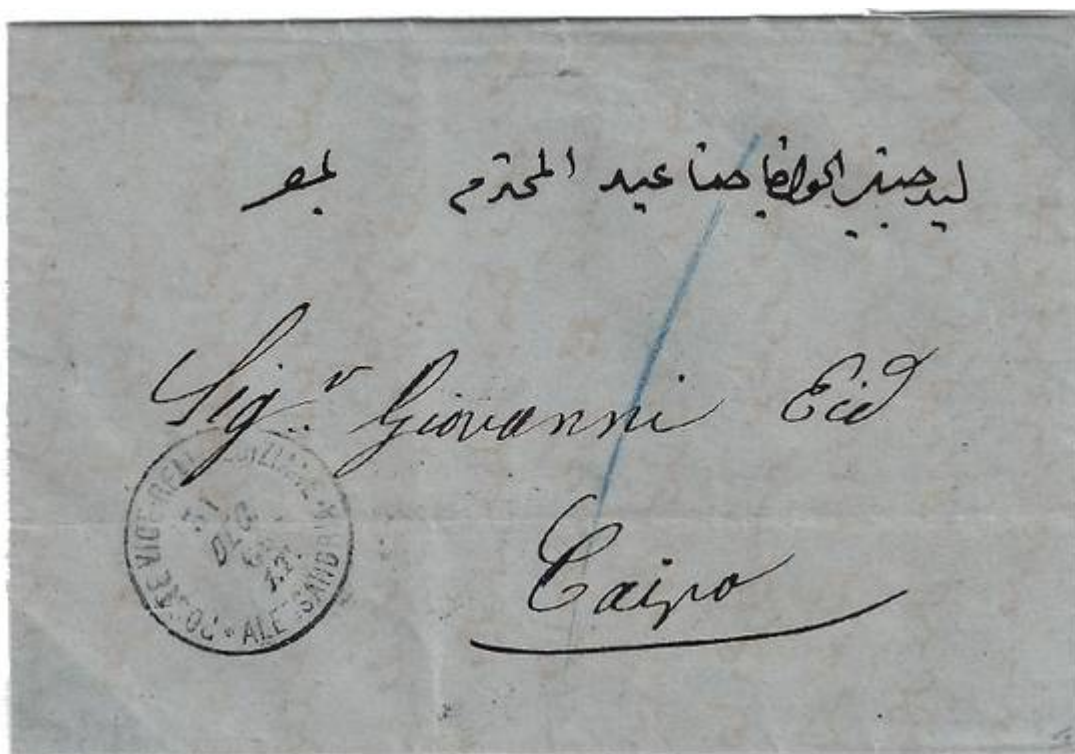 ليد جناب الخواجا حنا عيد المحترم بمصر
Sig.r Giovanni Eid
Cairo
POSTE VICE-REALI EGIZIANE
ALESSANDRIA
DEC